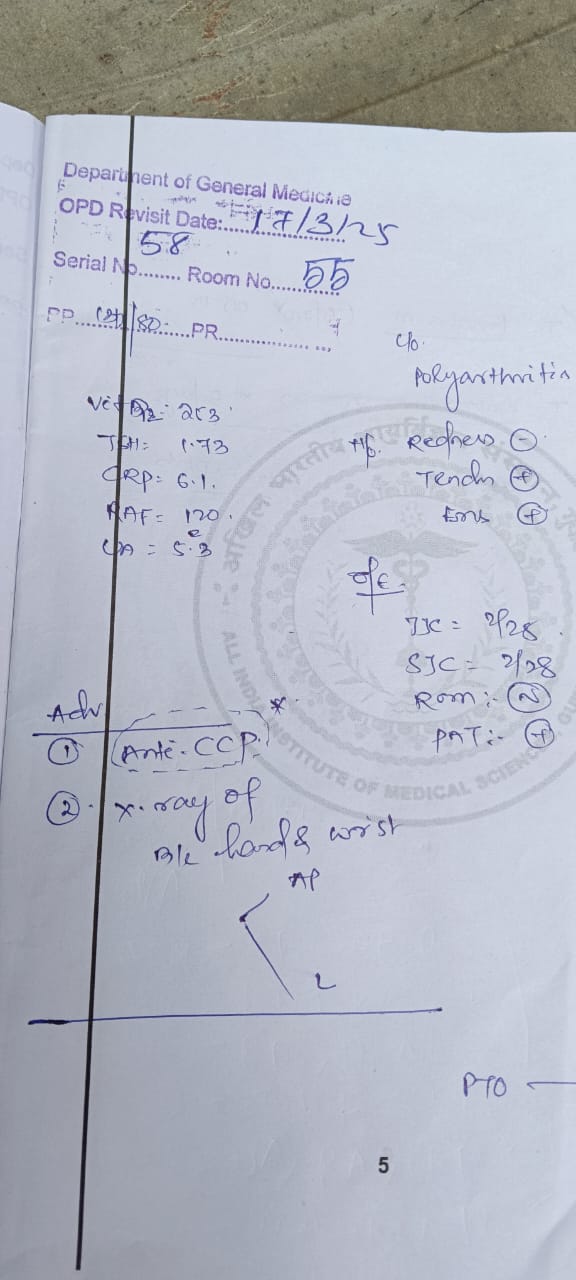 Department of General Medicine
OPD Revisit Date:.....17/3/25
58
Serial No......... Room No......55
PR
c/o.
Polyarthritis
Vit B12: 253
TSH= 1.73
CRP= 6.1.
RAF= 120.
UA = 5.3
H/o. Redness ⊖
Tendn ⊕
Ems ⊕
o/e.
TJC = 2/28
SJC = 2/28
Rom :- N
PAT:- ⊕
Adv
① Anti-CCP *
② x-ray of
B/L hand & wrist
AP
L
PTO
5
अखिल भारतीय आयुर्विज्ञान
ALL INDIA INSTITUTE OF MEDICAL SCIENCES